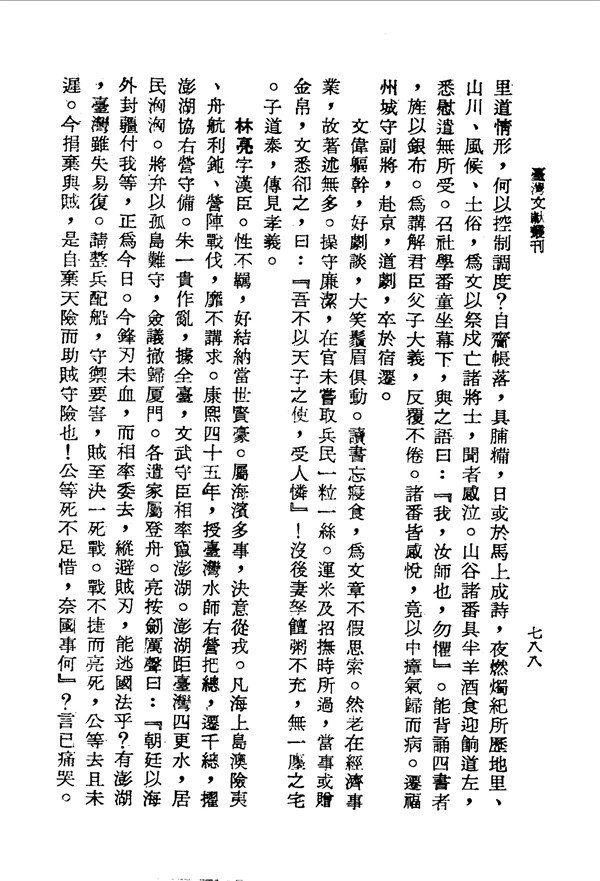 臺灣文獻叢刊
七八八
里道情形，何以控制調度？自齎帳落，具脯糒，日或於馬上成詩，夜燃燭紀所歷地里、
山川、風候、土俗，爲文以祭戍亡諸將士，聞者感泣。山谷諸番具羊酒食迎餉道左，
悉慰遣無所受。召社學番童坐幕下，與之語曰：『我，汝師也，勿懼』。能背誦四書者
，旌以銀布。爲講解君臣父子大義，反覆不倦。諸番皆感悅，竟以中瘴氣歸而病。遷福
州城守副將，赴京，道劇，卒於宿遷。
文偉軀幹，好劇談，大笑鬚眉俱動。讀書忘寢食，爲文章不假思索。然老在經濟事
業，故著述無多。操守廉潔，在官未嘗取兵民一粒一絲。運米及招撫時所過，當事或贈
金帛，文悉卻之，曰：『吾不以天子之使，受人憐』！沒後妻孥饘粥不充，無一廛之宅
。子道泰，傳見孝義。
林亮字漢臣。性不羈，好結納當世賢豪。屬海濱多事，決意從戎。凡海上島澳險夷
、舟航利鈍、營陣戰伐，靡不講求。康熙四十五年，授臺灣水師右營把總，遷千總，擢
澎湖協右營守備。朱一貴作亂，據全臺，文武守臣相率竄澎湖。澎湖距臺灣四更水，居
民洶洶。將弁以孤島難守，僉議撤歸厦門。各遣家屬登舟。亮按劒厲聲曰：『朝廷以海
外封疆付我等，正爲今日。今鋒刃未血，而相率委去，縱避賊刃，能逃國法乎？有澎湖
，臺灣雖失易復。請整兵配船，守禦要害，賊至決一死戰。戰不捷而亮死，公等去且未
遲。今捐棄與賊，是自棄天險而助賊守險也！公等死不足惜，奈國事何』？言已痛哭。